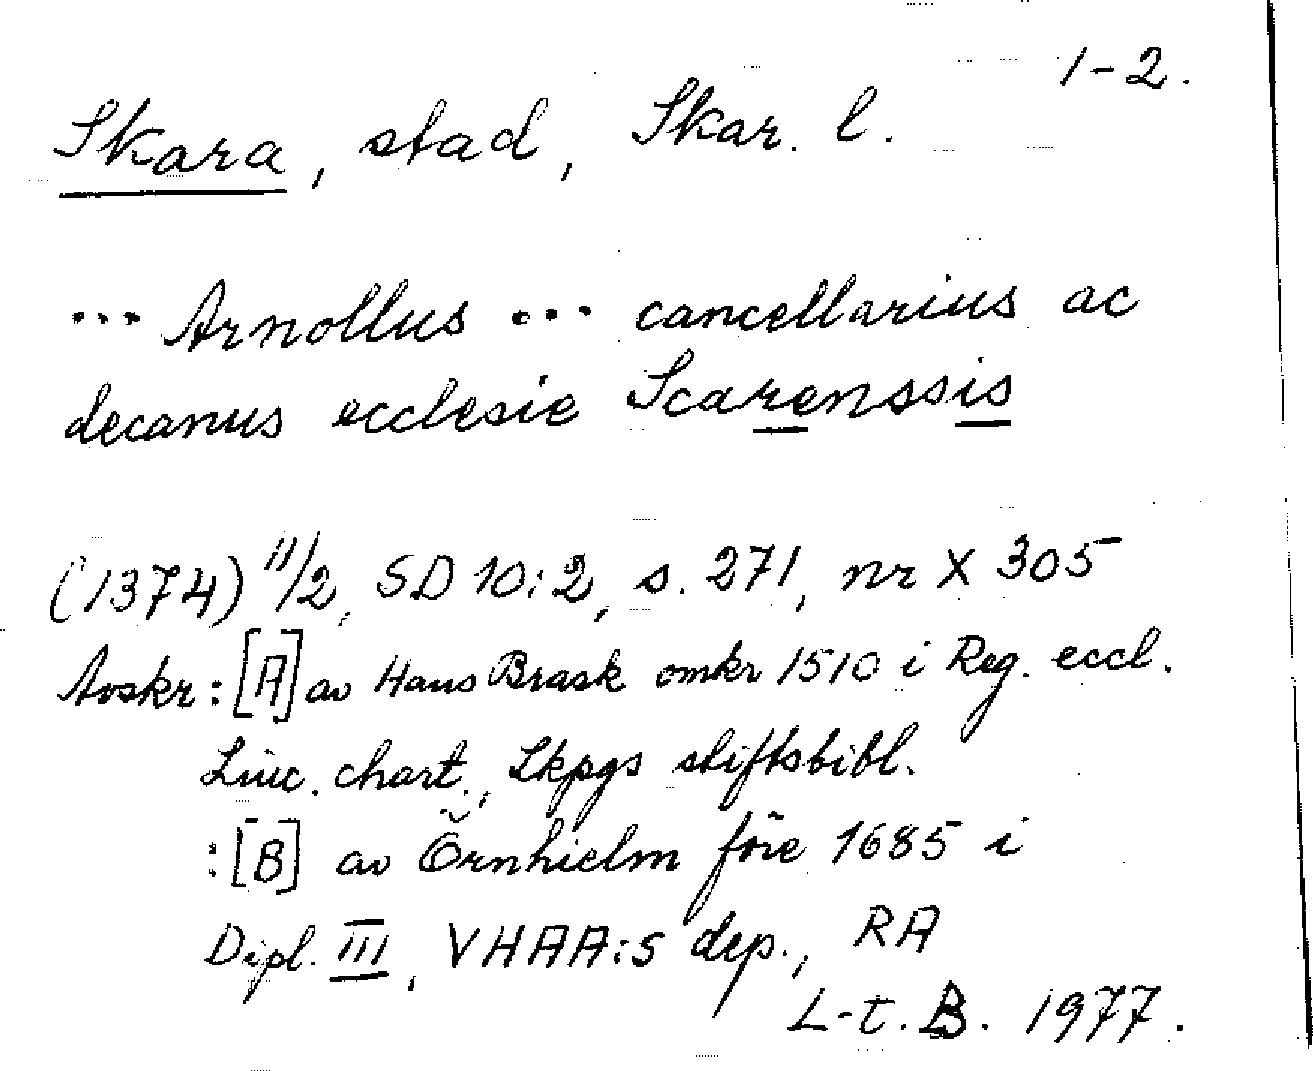 1-2.
Skara, stad, Skar. l.
... Arnollus ... cancellarius ac
decanus ecclesie Scarenssis
(1374) 11/2, SD 10:2, s. 271, nr X 305
Avskr: [A] av Hans Brask omkr 1510 i Reg. eccl.
Linc. chart., Lkpgs stiftsbibl.
:[B] av Örnhielm före 1685 i
Dipl. III, VHAA:s dep., RA
L-t. B. 1977.